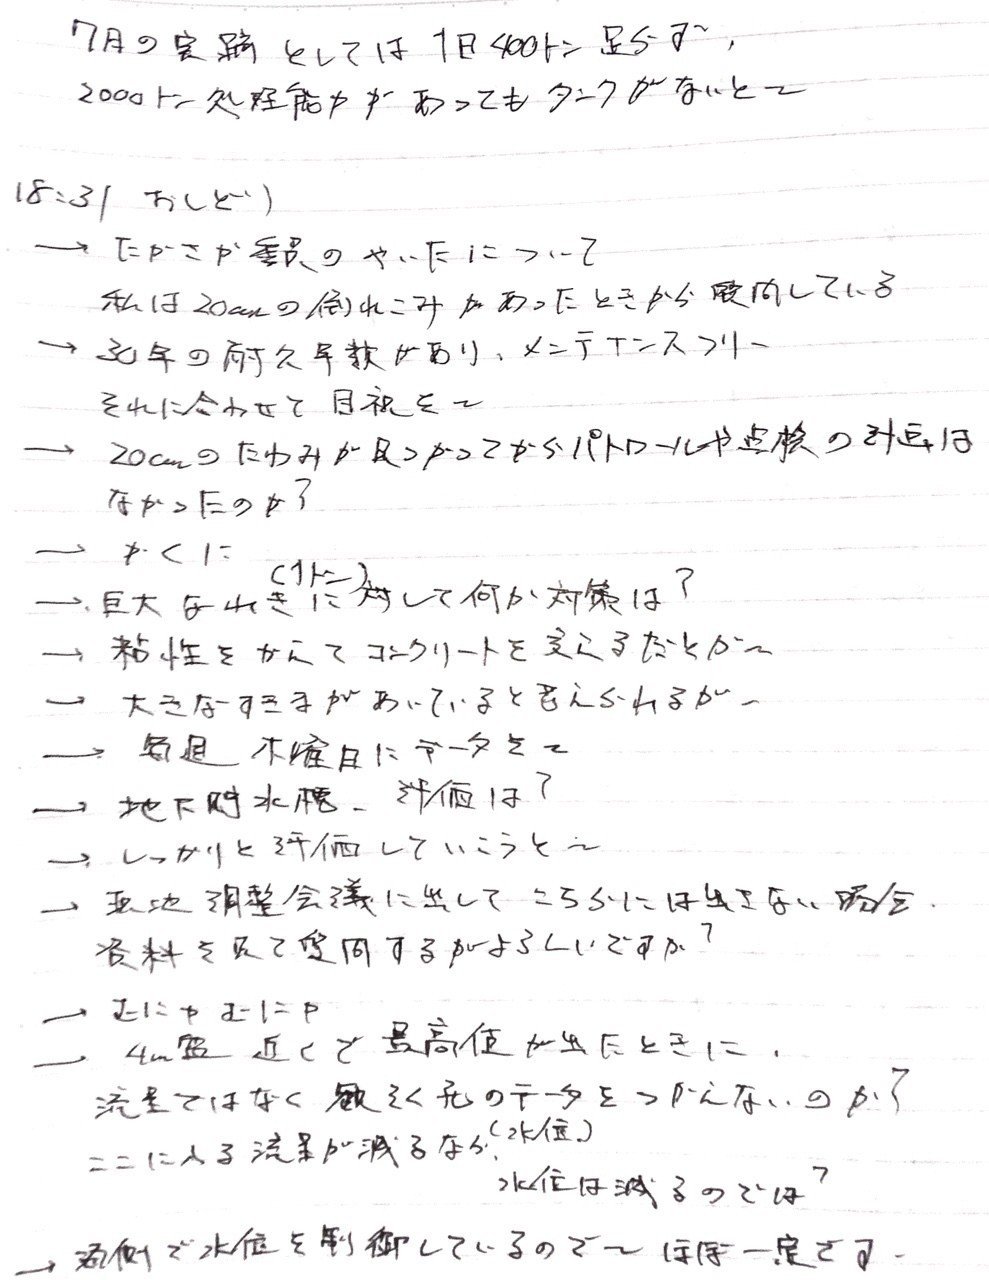 7月の実績としては1日400トン足らず〜、
2000トン処理能力があってもタンクがないと〜
18:31 おしどり
→ たかさか委員のやいたについて
私は20cmの倒れこみがあったときから質問している
→ 30年の耐久年数があり、メンテナンスフリー
それに合わせて目視を〜
→ 20cmのたわみが見つかってからパトロールや点検の計画は
なかったのか?
→ かくに
(1トン)
→ 巨大なれきに対して何か対策は?
→ 粘性をかえてコンクリートを変えるだとか〜
→ 大きなすきまがあいていると考えられるが〜
→ 毎週 木曜日にデータを〜
→ 地下貯水槽、評価は?
→ しっかりと評価していこうと〜
→ 現地調整会議に出してこちらには出さない場合、
資料を見て質問するがよろしいですか?
→ むにゃむにゃ
→ 4m盤 近くで最高値が出たときに、
流量ではなく 元のデータをつかえないのか?
ここに入る流量が減るなら、(水位)
水位は減るのでは?
→ 側で水位を制御しているので〜ほぼ一定です。